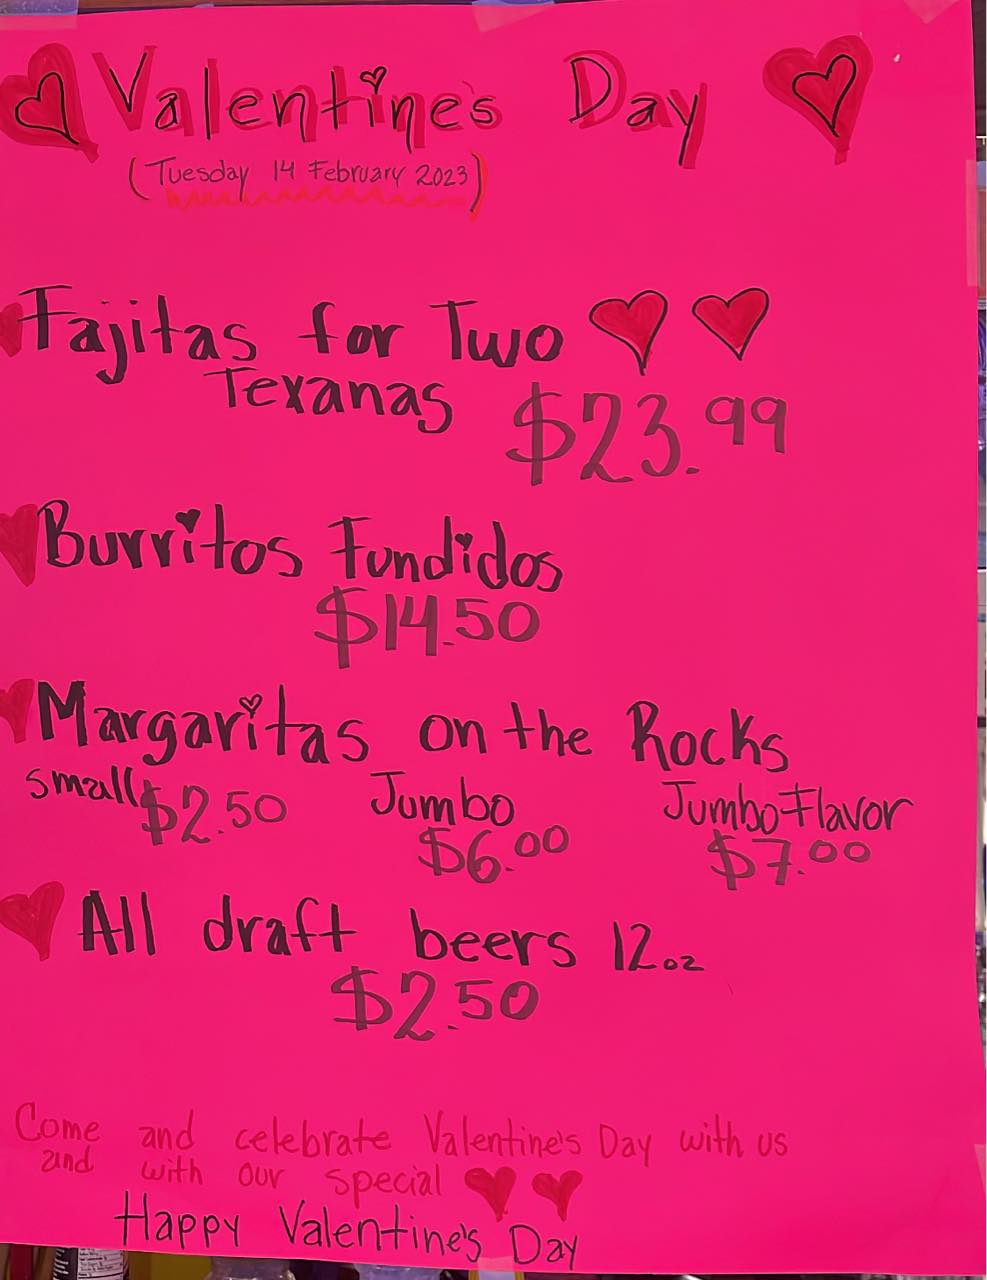 Valentine's Day
(Tuesday 14 February 2023)
Fajitas for Two
Texanas $23.99
Burritos Fundidos
$14.50
Margaritas on the Rocks
small $2.50 Jumbo $6.00 Jumbo Flavor $7.00
All draft beers 12oz
$2.50
Come and celebrate Valentine's Day with us
and with our special
Happy Valentine's Day